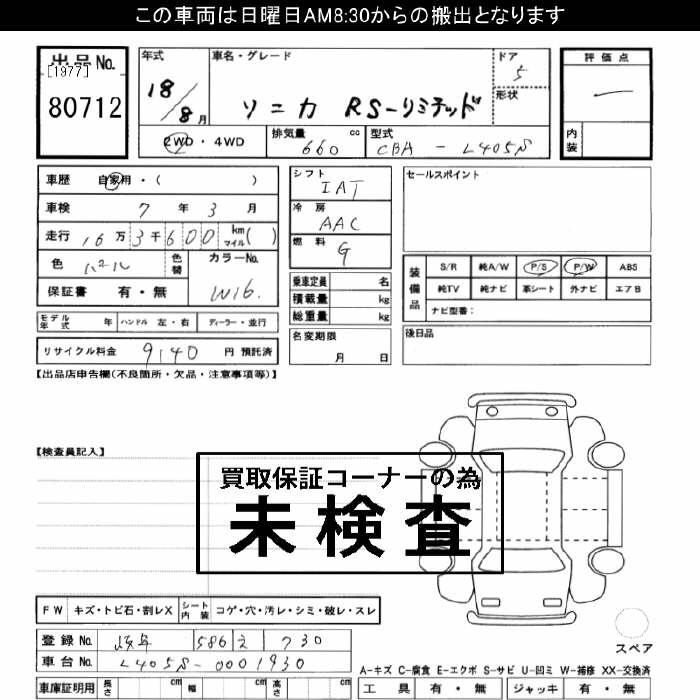 この車両は日曜日AM8:30からの搬出となります
出品No.
[1977]
80712
年式
18/8月
車名・グレード
ソニカ RS-リミテッド
ドア
5
形状
2WD・4WD
排気量
660 cc
型式
CBA - L405S
評価点
内装
車歴 自家用・( )
車検 7年 3月
走行 16万3千600 km マイル( )
色 パール 色替
カラーNo.
W16.
保証書 有・無
モデル年式 年 ハンドル 左・右 ディーラー・並行
リサイクル料金 9140 円 預託済
シフト
IAT
冷房
AAC
燃料
G
乗車定員 名
積載量 kg
総重量 kg
名変期限
月 日
セールスポイント
装備品
S/R 純A/W P/S P/W ABS
純TV 純ナビ 革シート 外ナビ エアB
ナビ型番:
後日品
【出品店申告欄(不良箇所・欠品・注意事項等)】
【検査員記入】
買取保証コーナーの為
未検査
FW キズ・トビ石・割レX シート内装 コゲ・穴・汚レ・シミ・破レ・スレ
登録No. 586 730
車台No. L405S-0001930
車庫証明用 長さ cm 幅 cm 高さ cm
スペア
A-キズ C-腐食 E-エクボ S-サビ U-凹ミ W-補修 XX-交換済
工具 有・無 ジャッキ 有・無